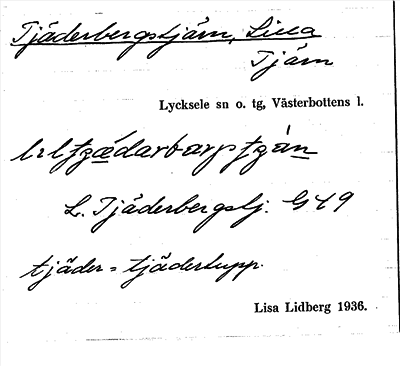 Tjäderbergstjärn, Lilla
Tjärn
Lycksele sn o. tg, Västerbottens l.
L. Tjäderbergstj. G49
tjäder = tjädertupp.
Lisa Lidberg 1936.